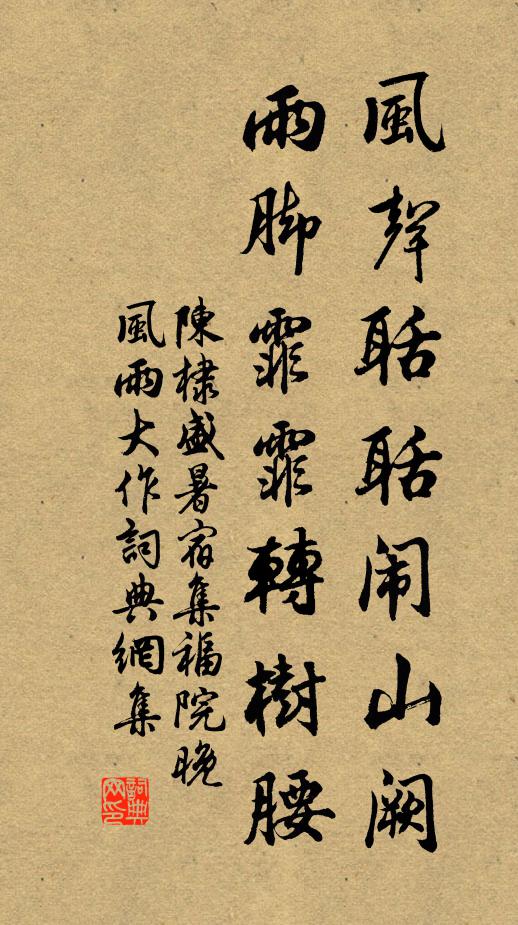 風聲聒聒闹山阙
雨脚霏霏轉樹腰
陳棣盛暑宿集福院晚
風雨大作詞典網集
詞典網印